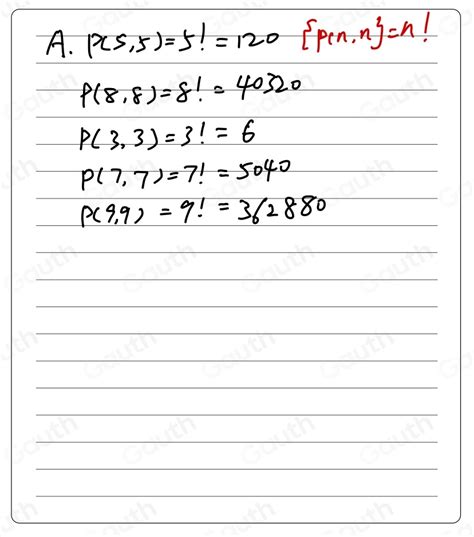 A. P(5,5)=5!=120 [P(n,n}=n!
P(8,8)=8!=40320
P(3,3)=3!=6
P(7,7)=7!=5040
P(9,9)=9!=362880
Gauth